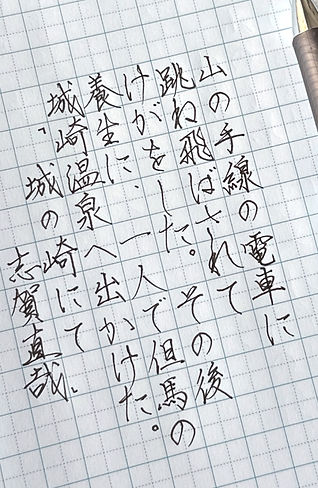 山の手線の電車に
跳ね飛ばされて
けがをした。その後
養生に、一人で但馬の
城崎温泉へ出かけた。
「城の崎にて」
志賀直哉